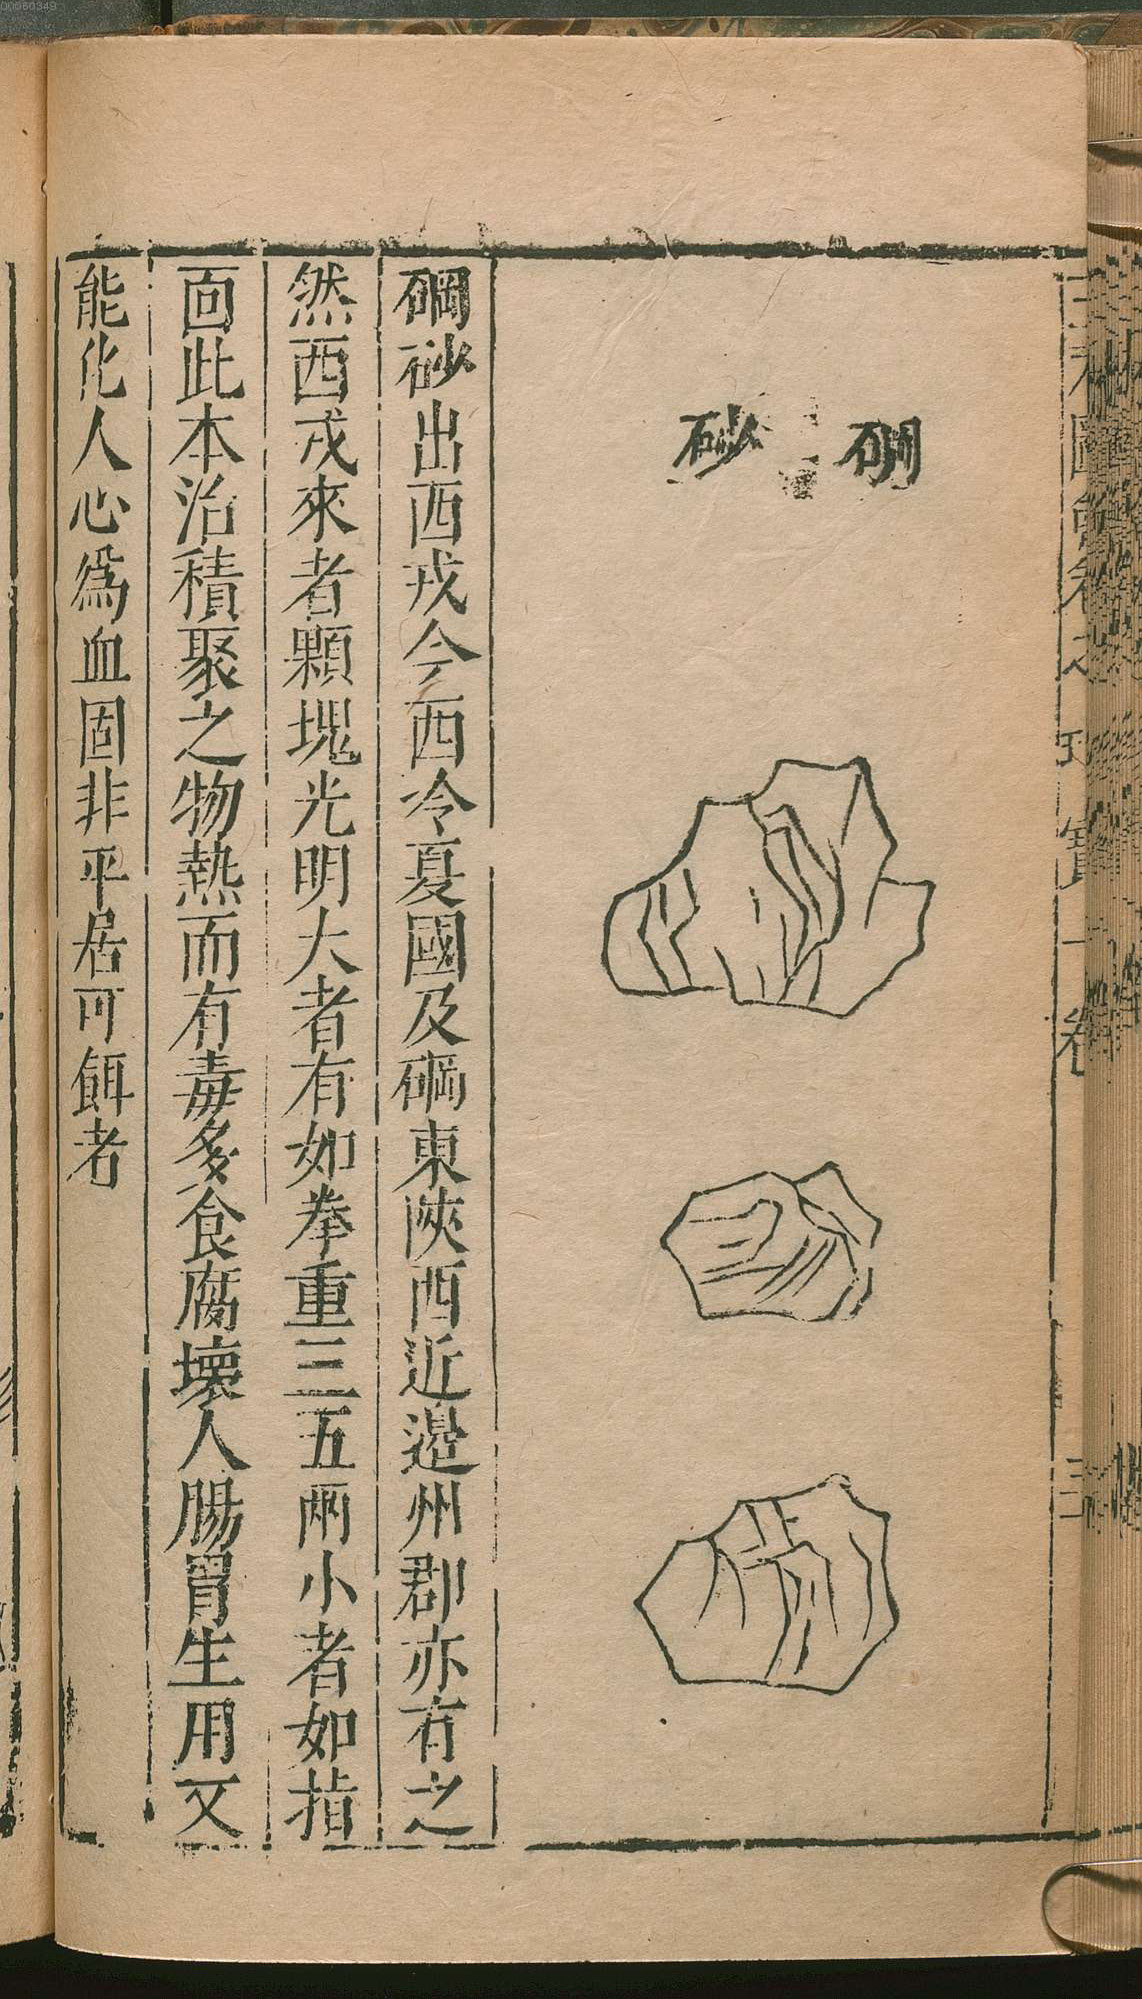 三才圖會卷之 珍寶一卷 三
硇砂
硇砂出西戎今西冷夏國及硇東陝西近邊州郡亦有之
然西戎來者顆塊光明大者有如拳重三五兩小者如指
面此本治積聚之物熱而有毒多食腐壞人腸胃生用又
能化人心為血固非平居可餌者
00060349